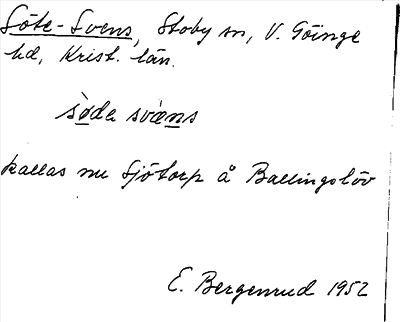 Söte-Svens, Stoby sn, V. Göinge
hd, Krist. län.
sø̀da svæns
kallas nu Sjötorp å Ballingslöv
E. Bergenrud 1952